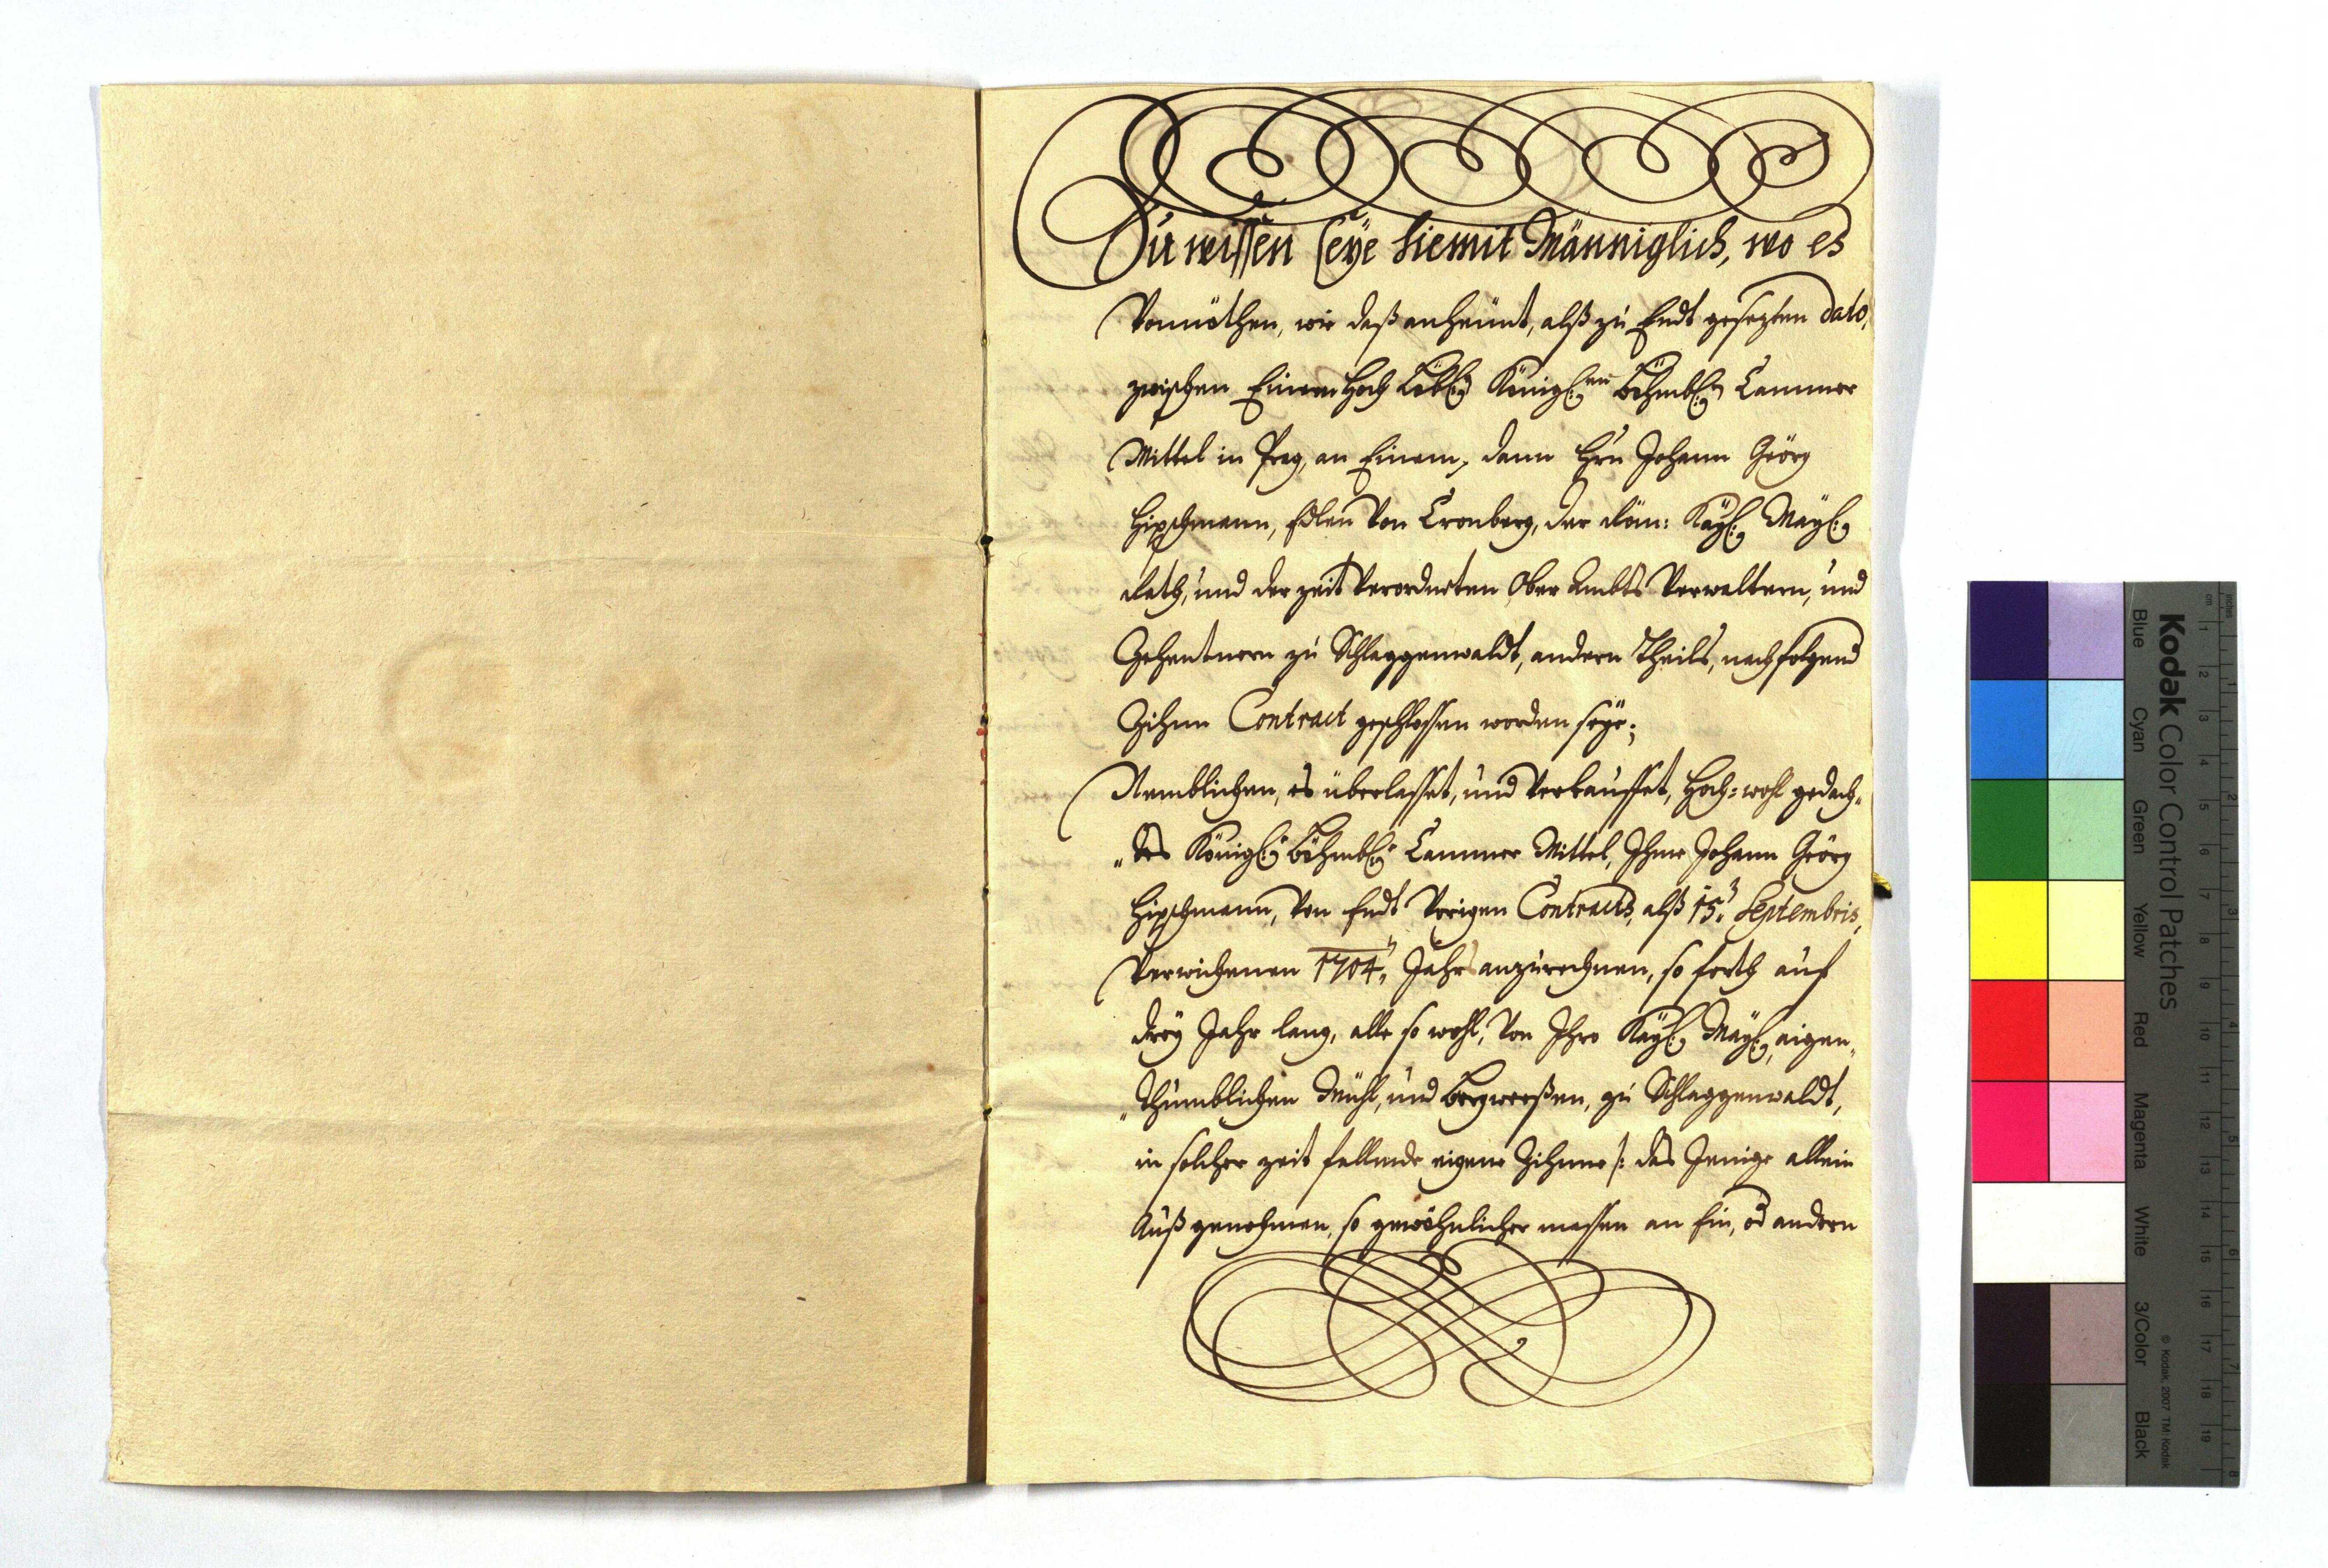 Zu wissen seÿe hiemit Männiglich, wo es
Vonnöthen, wie daß anheünt, alß zu Endt gesezten dato,
zwischen Einem Hoch Löbl: Königl:en Böhmbl:n Cammer
Mittel in Prag, an Einem, dann Hrn Johann Geörg
Hipschmann, Edlen Von Cronberg, der Röm: Kaÿl: Maÿl:
Rath, und der zeit Verordneten Ober Ambts Verwaltern, und
Zehentnern zu Schlaggenwaldt, andern Theils, nachfolgend
Zihnn Contract geschlossen worden seÿe;
Nemblichen, es überlasset, und Verkauffet, Hoch=wohl gedach„
„tes Königl: Böhmbl: Cammer Mittel, Ihme Johann Geörg
Hipschmann, Von Endt Vorigen Contracts, alß 15. Septembris,
Verwichenen 1704. Jahrs anzurechnen, so forth auf
dreÿ Jahr lang, alle so wohl, Von Ihro Kaÿl: Maÿl:, aigen„
„thümblichen Mühl, und Bergwerkßen, zu Schlaggenwaldt,
in solcher zeit fallende eigene Zihnne /: das Jenige allein
Auß genohmen, so gewöhnlicher massen an Ein, od andern
Kodak Color Control Patches
Blue Cyan Green Yellow Red Magenta White 3/Color Black
© Kodak, 2007 TM: Kodak
inches 1 2 3 4 5 6 7 8
cm 1 2 3 4 5 6 7 8 9 10 11 12 13 14 15 16 17 18 19